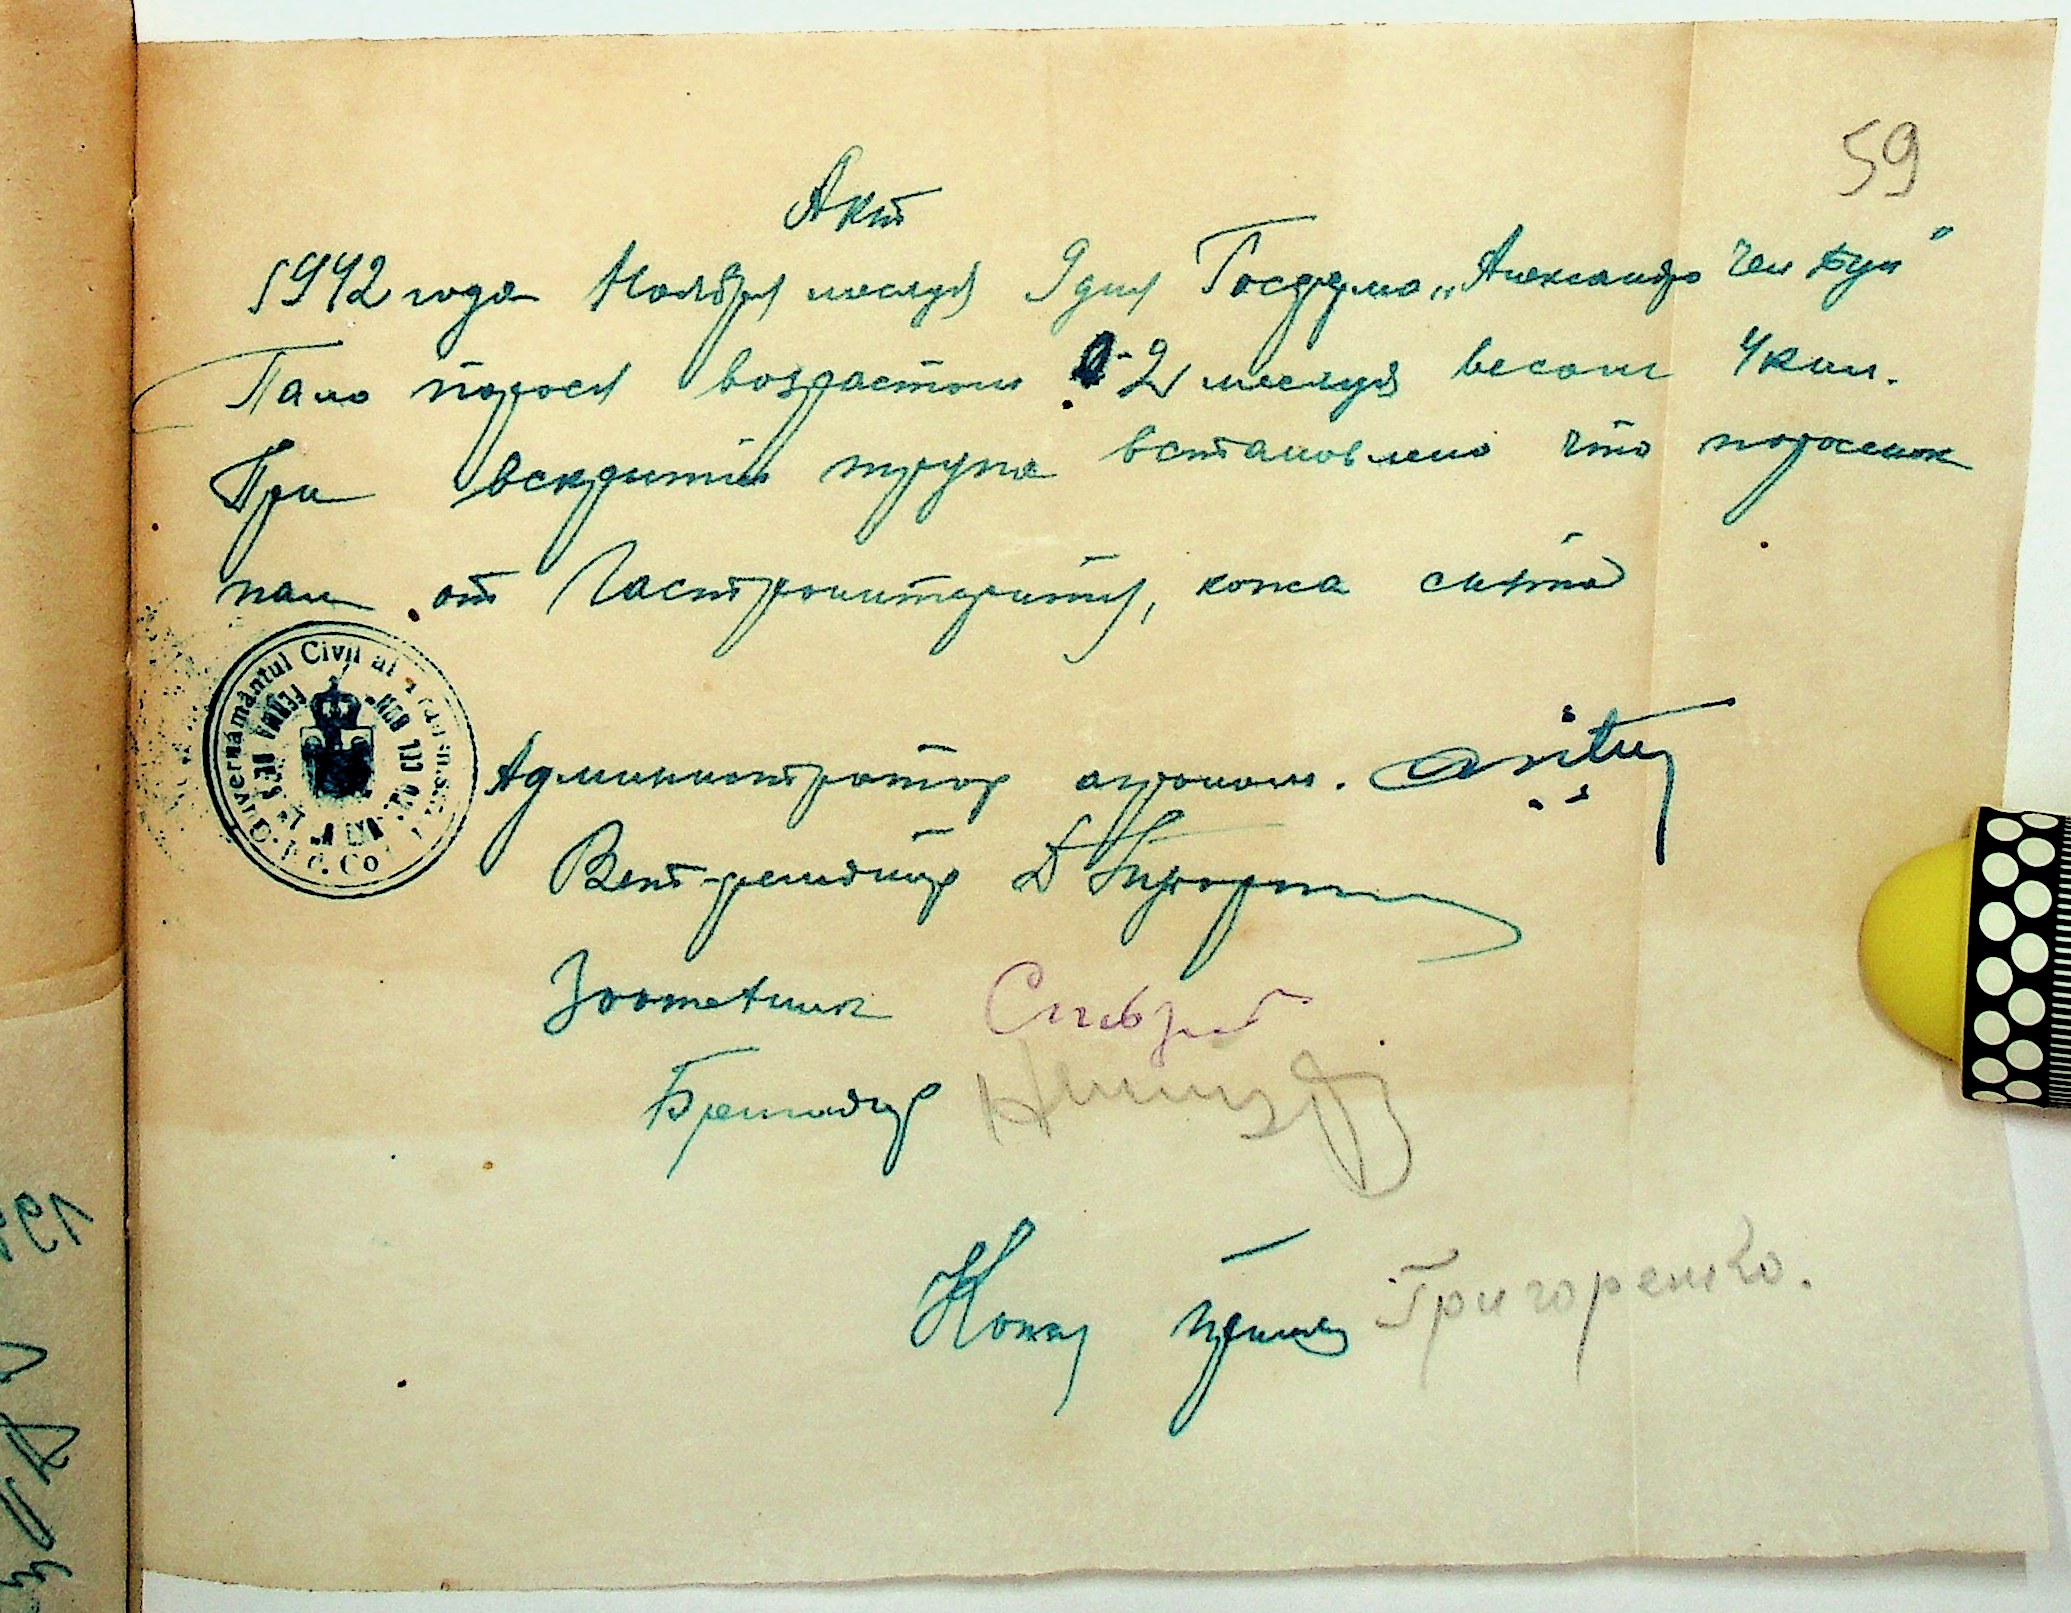 59
Акт
1942 года Ноября месяця 9 дня Госферма „Александро чел Бун"
Пало порося возрастом 2 месяця весом 4 кил.
При вскритии трупа встановлено что поросенок
пал от Гастроинтерита, кожа снята
Guvernământul Civil al
FERMA DE STAT
CEL BUN"
Администратор агроном.
Вет-фельдшер
Зоотехник
Бригадир
Кожу принял Григоренко.